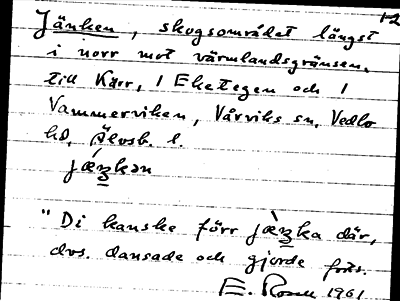 Jänken, skogsområdet längst
i norr mot värmlandsgränsen,
till Kärr, 1 Eketegen och 1
Vammerviken, Vårviks sn, Vedbo
hd, Älvsb. l.
"Di kanske förr där,
dvs. dansade och gjorde
E. 1961